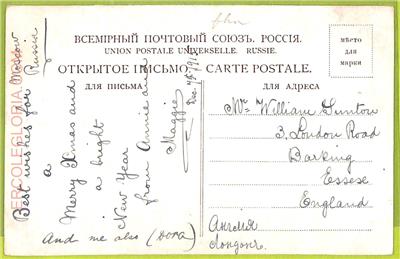 ВСЕМІРНЫЙ ПОЧТОВЫЙ СОЮЗЪ. РОССІЯ.
UNION POSTALE UNIVERSELLE. RUSSIE.
ОТКРЫТОЕ ПИСЬМО — CARTE POSTALE.
ДЛЯ ПИСЬМА
ДЛЯ АДРЕСА
МѢСТО
ДЛЯ
МАРКИ
ERCOLEGLORIA
Moscow
Russia
Best wishes for
a
Merry Xmas and
a bright
New Year
from Annie and
Maggie
And me also (Dora)
Mr William Gunton
3, London Road
Barking
Essex
England
Англія
Лондонъ.